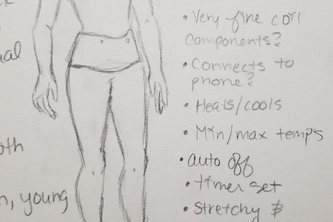 ual
oth
n, young
• Very fine coil
components?
• Connects to
phone?
• Heats/cools
• Min/max temps
• auto off
• timer set
• Stretchy